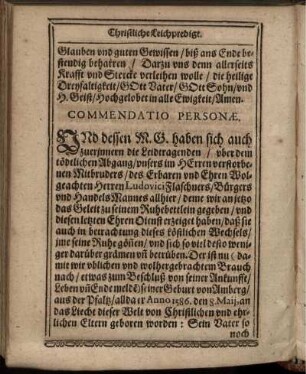 Christliche Leichpredigt.
Glauben vnd guten Gewissen / biß ans Ende be-
stendig beharren / Darzu vns denn allerseits
Krafft vnd Stercke verleihen wolle / die heilige
Dreyfaltigkeit / GOtt Vater / GOtt Sohn / vnd
H. Geist / Hochgelobet in alle Ewigkeit / Amen.
COMMENDATIO PERSONÆ,
VNd dessen M. G. haben sich auch
zuerinnern die Leidtragenden / vber dem
tödtlichen Abgang / vnsers im HErren verstorbe-
nen Mitbruders / des Erbaren vnd Ehren Wol-
geachten Herren Ludovici Flaschners / Bürgers
vnd HandelsMannes allhier / deme wir an jetzo
das Geleit zu seinem Ruhebettlein gegeben / vnd
diesen letzten Ehren Dienst erzeiget haben / daß sie
auch in betrachtung dieses köstlichen Wechsels /
jme seine Ruhe gönnen / vnd sich so viel desto weni-
ger darüber grämen vñ betrüben. Der ist nu (da-
mit wir vblichen vnd wolhergebrachtem Brauch
nach / etwas zum Beschluß von seiner Ankunfft /
Leben vñ Ende meldẽ) seiner Geburt von Amberg /
aus der Pfaltz / allda er Anno 1586. den 8. Maij. an
das Liecht dieser Welt von Christlichen vnd ehr-
lichen Eltern geboren worden : Sein Vater so
noch